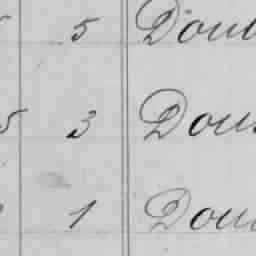 5 Dou
5 3 Dou
1 Dou